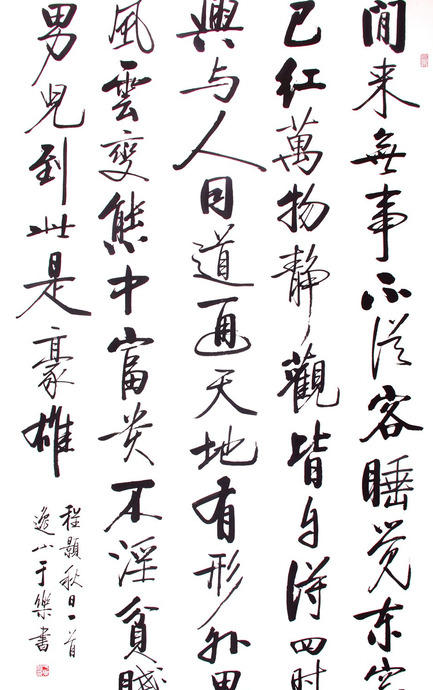 閒来無事不從容睡觉东窗
已红萬物静觀皆自得四时
興与人同道通天地有形外
風雲變態中富贵不淫貧賤
男児到此是豪雄
程顥秋日一首
逸山于樂書